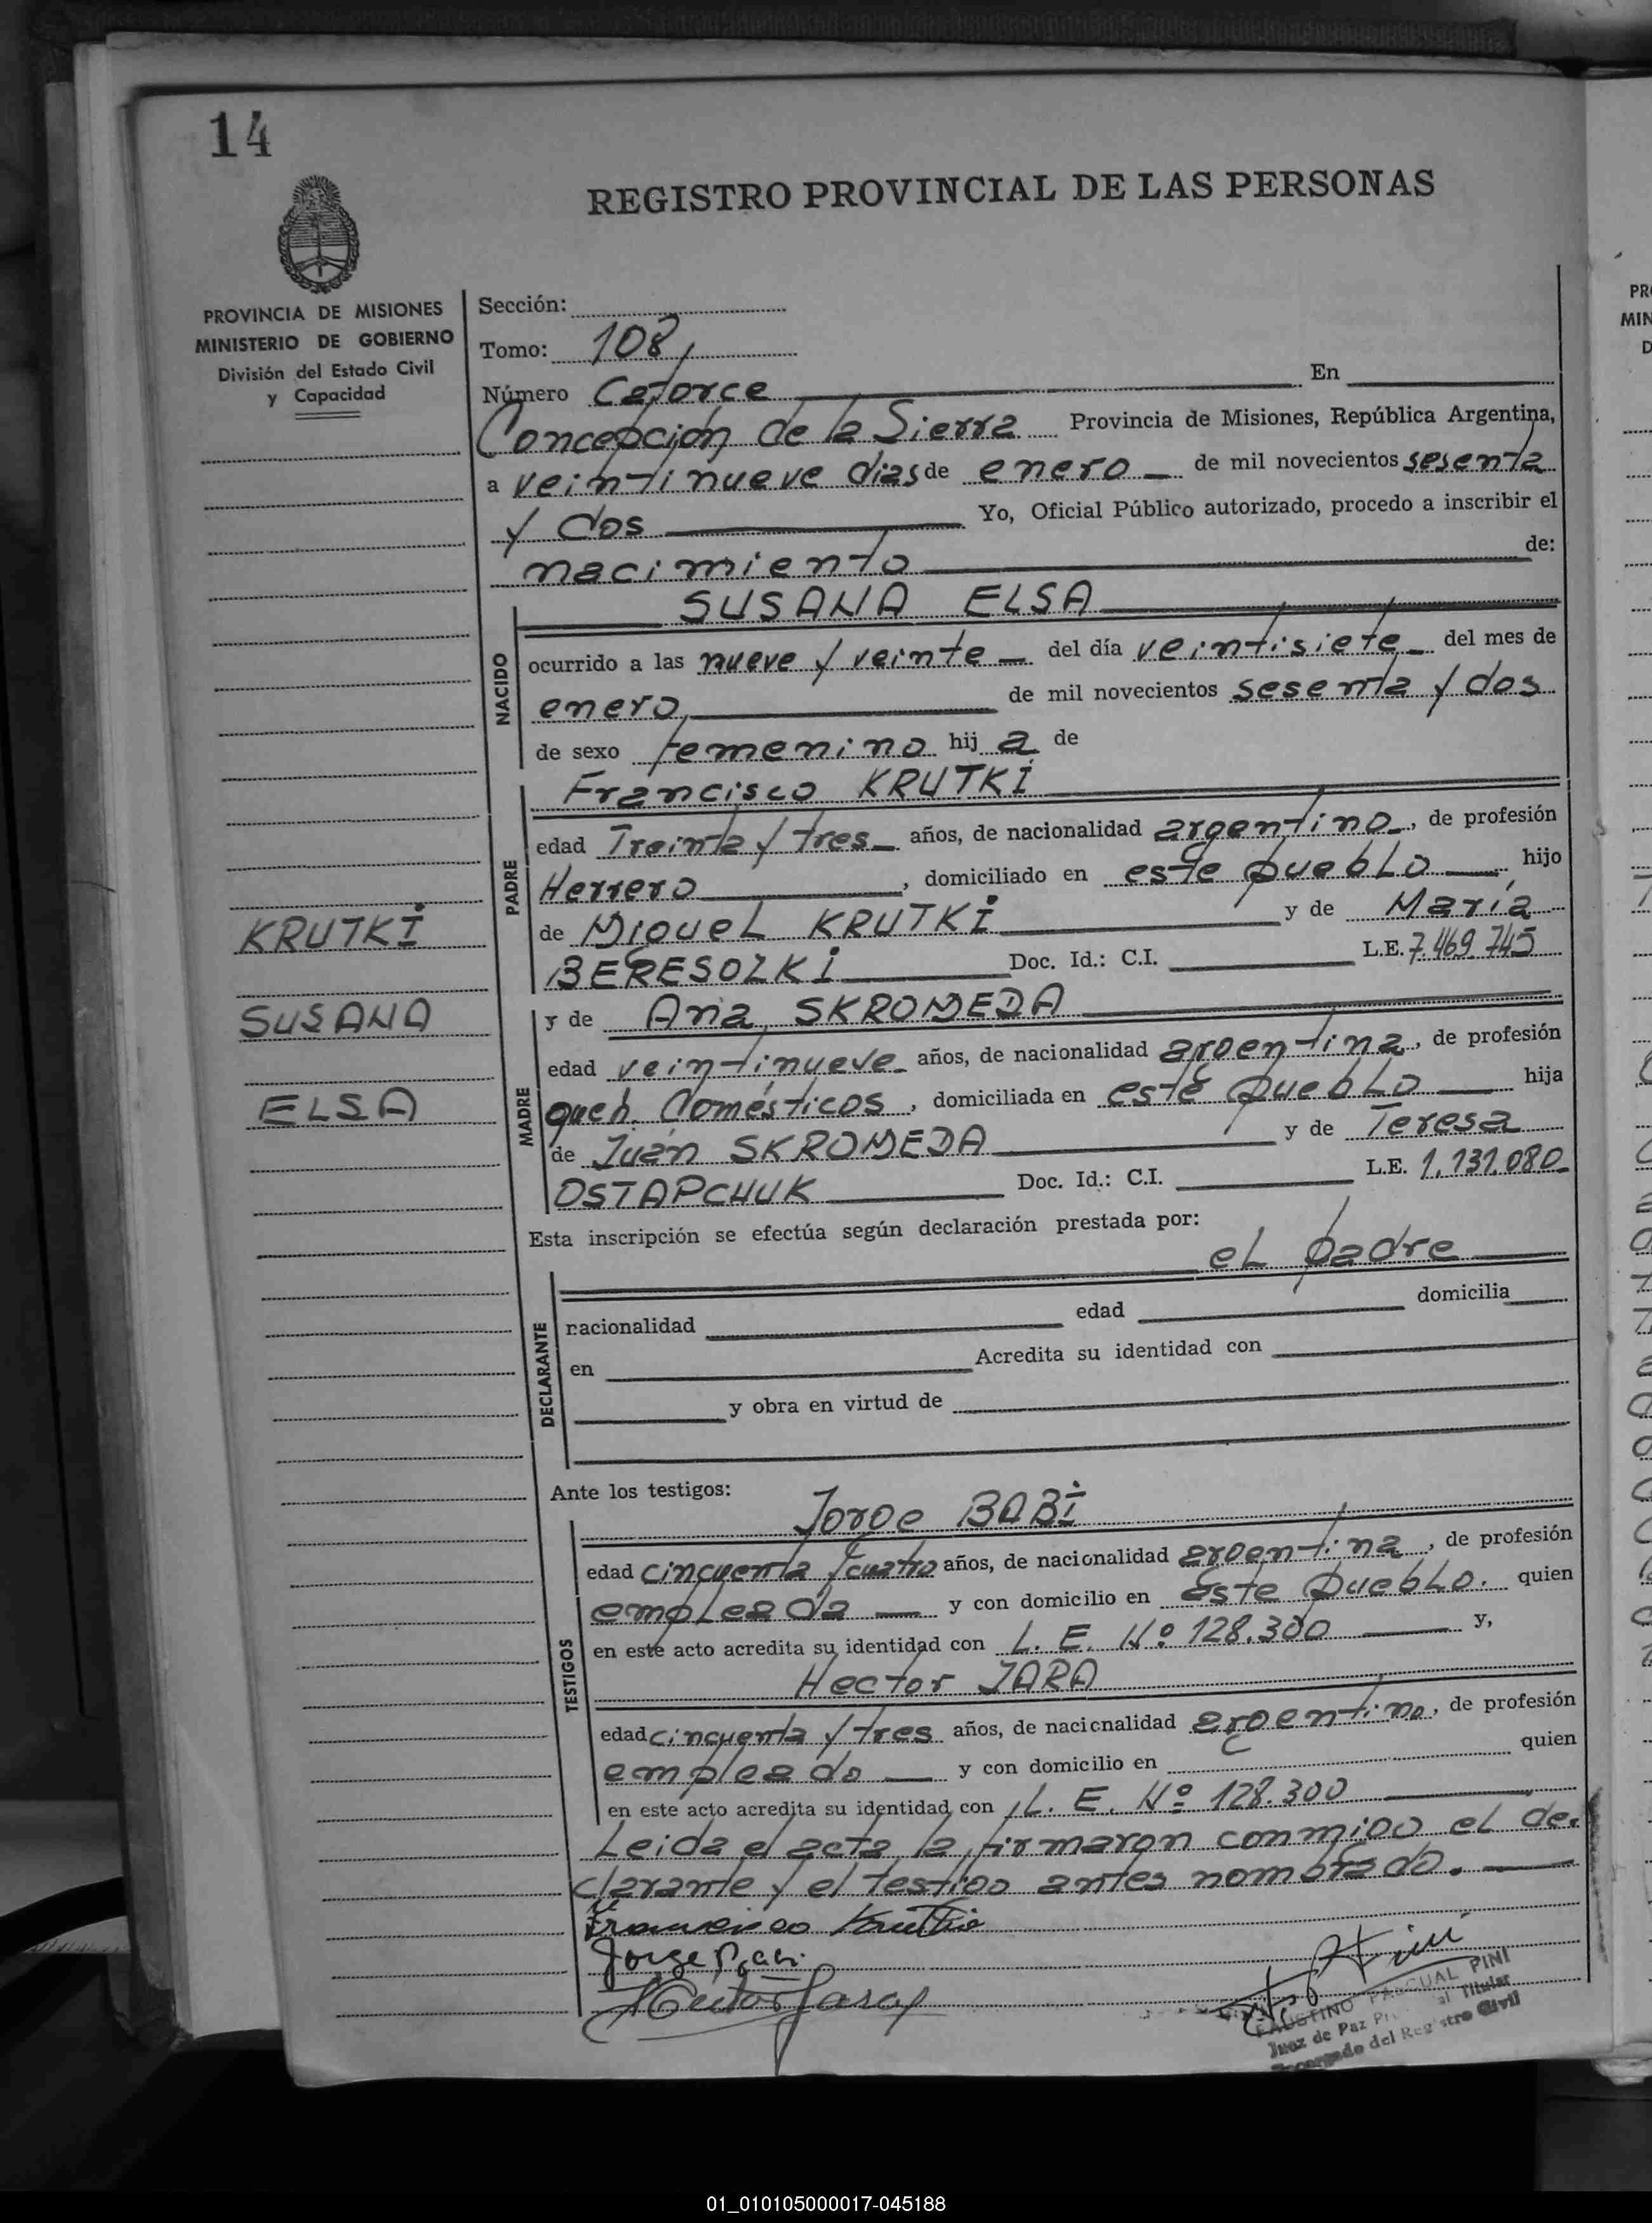 14
REGISTRO PROVINCIAL DE LAS PERSONAS
PROVINCIA DE MISIONES
MINISTERIO DE GOBIERNO
División del Estado Civil
y Capacidad
KRUTKI
SUSANA
ELSA
Sección:
Tomo: 108,
Número Catorce En
Concepción de la Sierra Provincia de Misiones, República Argentina,
a veintinueve dias de enero de mil novecientos sesenta
y dos Yo, Oficial Público autorizado, procedo a inscribir el
nacimiento de:
NACIDO
SUSANA ELSA
ocurrido a las nueve y veinte del día veintisiete del mes de
enero, de mil novecientos sesenta y dos
de sexo femenino hij a de
PADRE
Francisco KRUTKI
edad Treinta y tres años, de nacionalidad argentino, de profesión
Herrero, domiciliado en este pueblo hijo
de Miguel KRUTKI y de María
BERESOZKI Doc. Id.: C.I. L.E. 7.469.745
MADRE
y de Ana SKROMEDA
edad veintinueve años, de nacionalidad argentina, de profesión
queh. Domésticos, domiciliada en este pueblo hija
de Juan SKROMEDA y de Teresa
OSTAPCHUK Doc. Id.: C.I. L.E. 1.131.080
Esta inscripción se efectúa según declaración prestada por:
el padre
DECLARANTE
nacionalidad edad domicilia
en Acredita su identidad con
y obra en virtud de
Ante los testigos:
TESTIGOS
Jorge BABI
edad cincuenta y cuatro años, de nacionalidad argentina, de profesión
empleada y con domicilio en este pueblo. quien
en este acto acredita su identidad con L. E. Nº 128.300 y,
Hector JARA
edad cincuenta y tres años, de nacionalidad argentino, de profesión
empleado y con domicilio en quien
en este acto acredita su identidad con L. E. Nº 128.300
Leida el acta la firmaron conmigo el de-
clarante y el testigo antes nombrado.
Francisco Krutki
Jorge Babi
Hector Jara
FAUSTINO PASCUAL PINI
Juez de Paz Titular
Encargado del Registro Civil
01_010105000017-045188